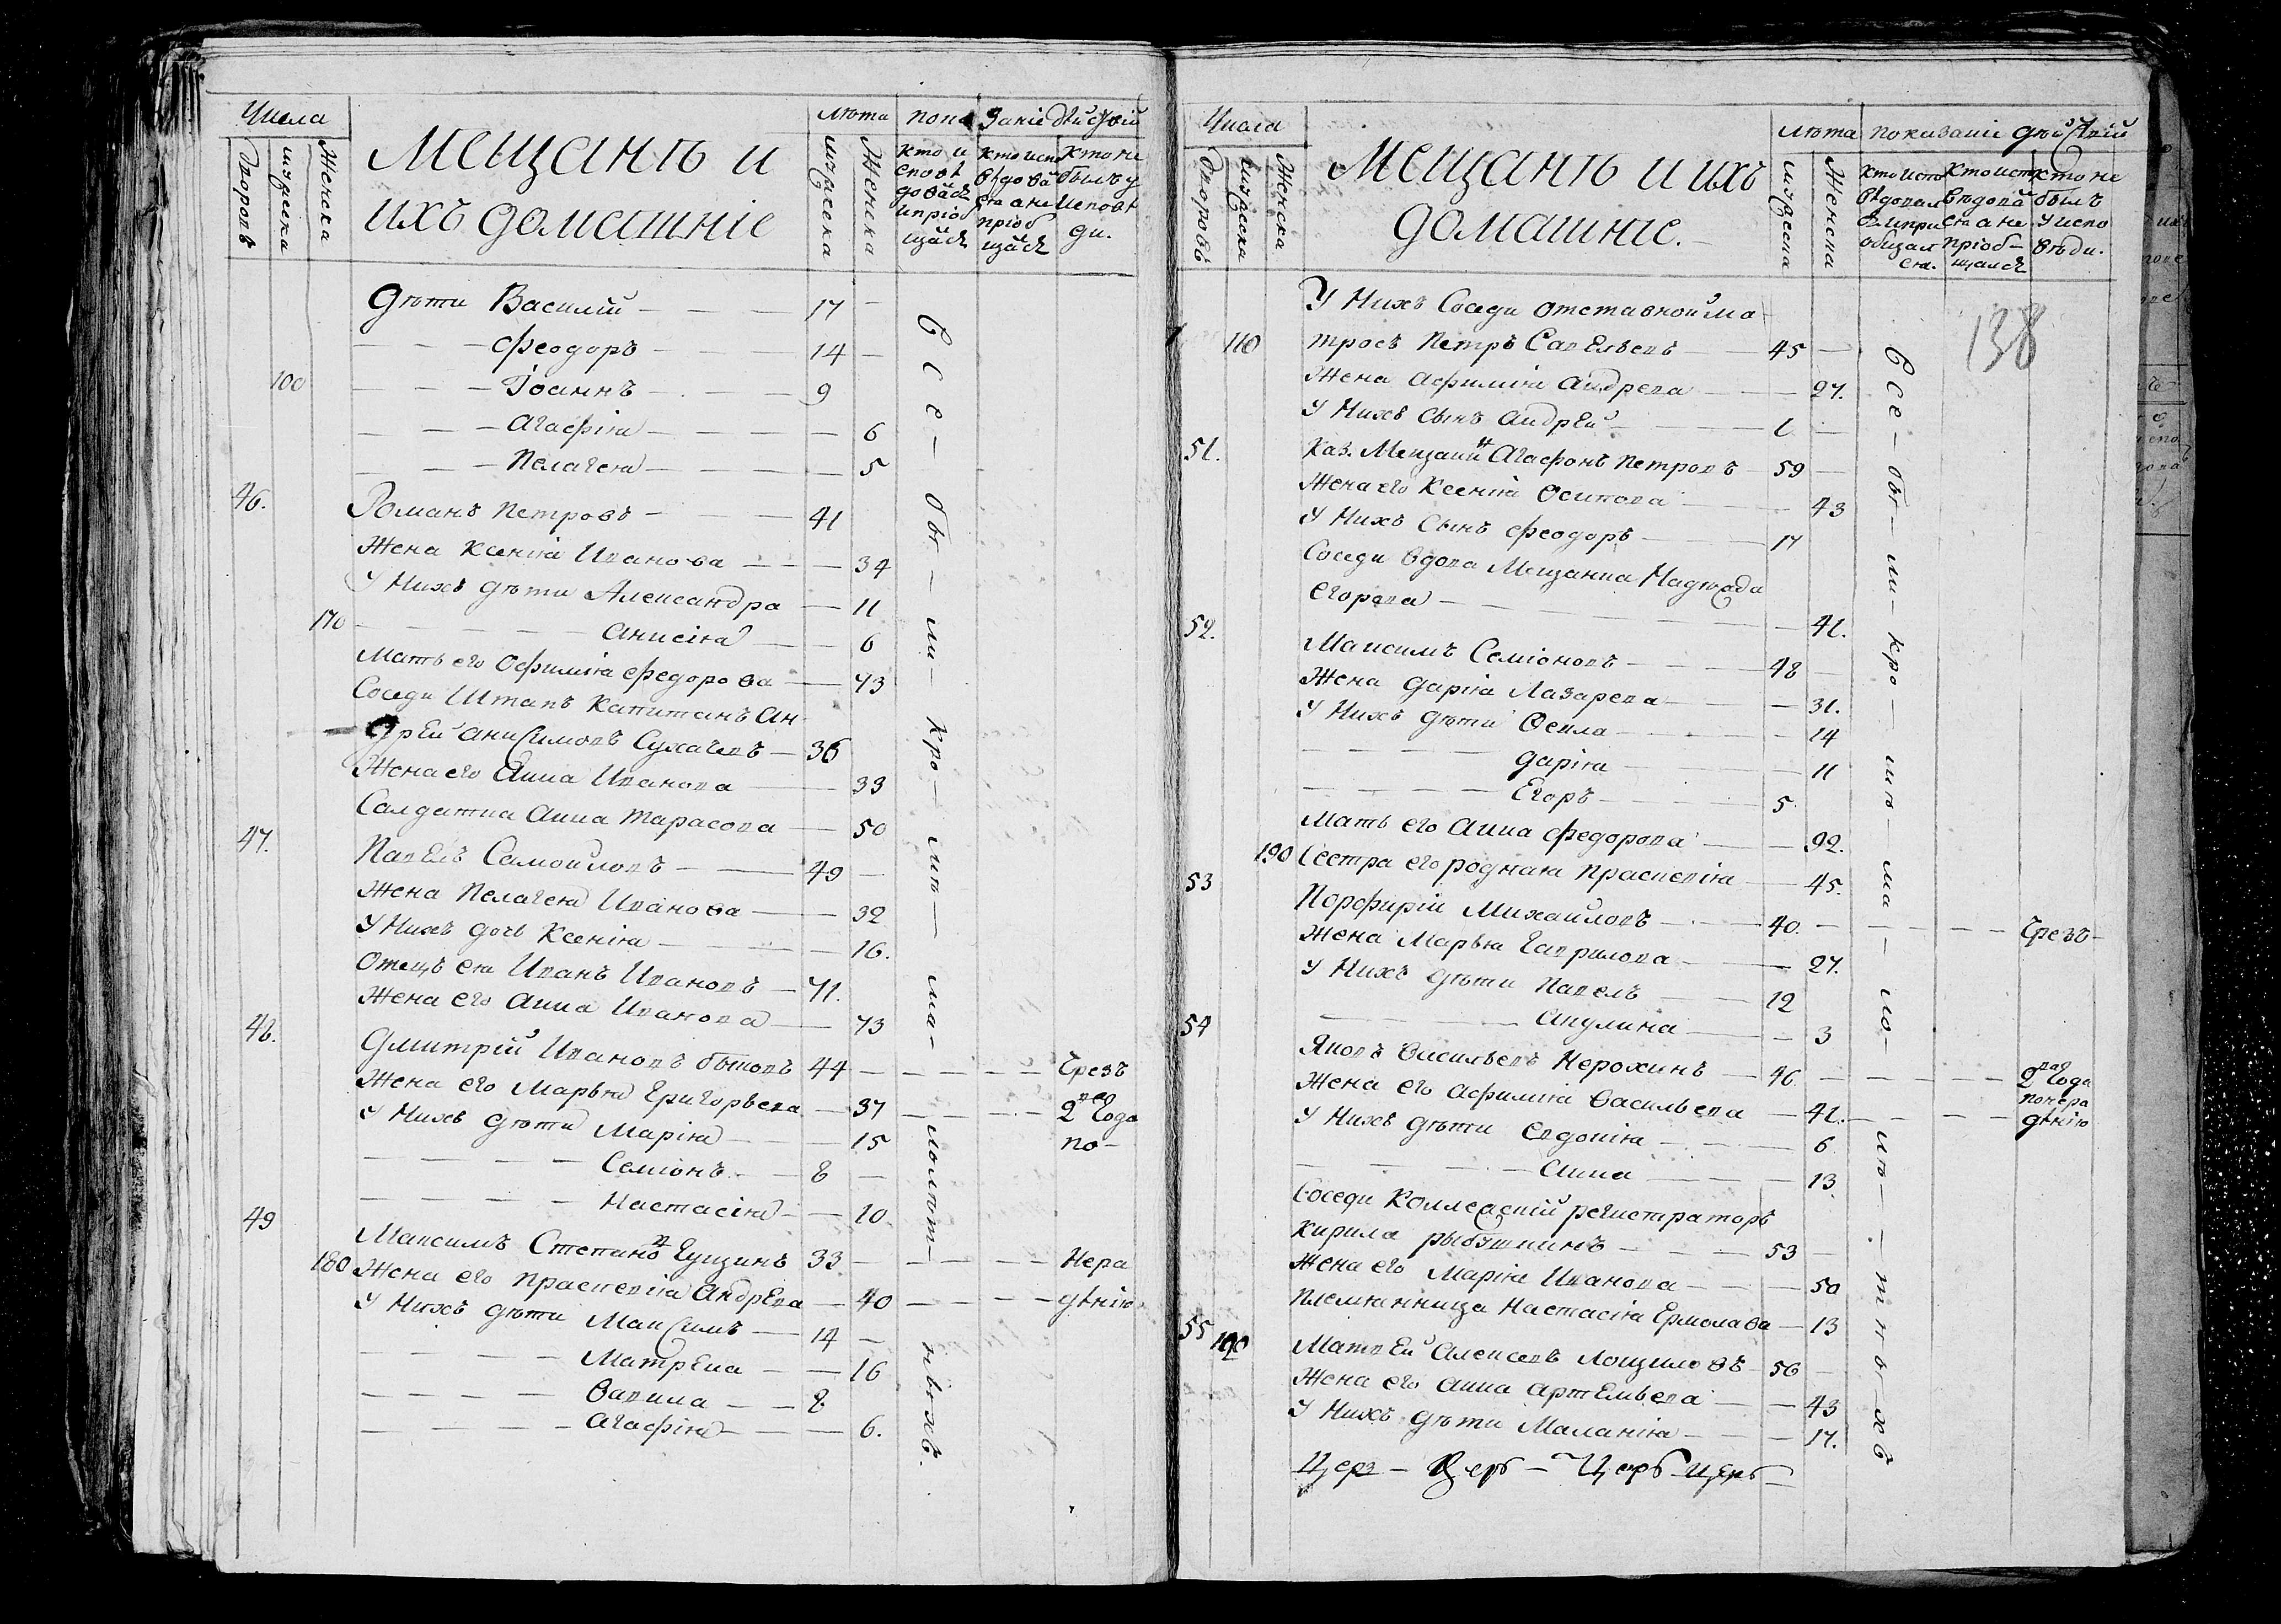 Числа
Мещанъ и
ихъ домашніе
лѣта
показаніе дѣйствій
дворовъ
мужеска
Женска
мужеска
Женска
кто и
сповѣ
довался
и пріоб
щался
кто испо
вѣдовал
ся а не
пріоб
щался
кто не
былъ у
исповѣ
ди.
Дѣти Василій — — — 17 —
— — — Феодоръ — — 14 —
100 — — — Іоаннъ — — — 9
— — — Агафія — — — — 6
— — — Пелагея — — — — 5
46. Романъ Петровъ — — — 41
Жена Ксенія Иванова — — — 34
У Нихъ дѣти Александра — 11
170 — — — — Анисія — — 6
Мать его Офимія Федорова — 73
Соседи Штапъ Капитанъ Ан
дрей Анисимовъ Сухачевъ — 36
Жена его Анна Иванова — — 33
Салдатка Анна Тарасова — 50
47. Павелъ Самойловъ — — 49 —
Жена Пелагея Иванова — — 32
У Нихъ дочь Ксенія — — — 16.
Отецъ ея Иванъ Ивановъ — 71.
Жена его Анна Иванова — 73
48. Дмитрій Ивановъ Быковъ 44 — — — — — Чрезъ
Жена его Марья Григорьева — 37 — — — — 2 года
У Нихъ дѣти Марія — — 15 по-
— — — — Семіонъ — — 8 —
— — — — Настасія — — 10.
49 Максимъ Степановъ Гущинъ 33 — — — — — Нера
180 Жена его Прасковія Андрева — 40 — — — — дѣнію
У Нихъ дѣти Максимъ — 14 —
— — — — Матрена — — 16
— — — — Вавила — — 8
— — — — Агафія — — — 6.
Все — бы — ли — кро — мѣ — ма — лолѣт — нѣхъ.
Числа
Мещанъ и ихъ
домашніе.
лѣта
показаніе дѣйствій
дворовъ
мужеска
Женска
мужеска
Женска
кто испо
вѣдовал
ся и при
общал
ся.
кто испо
вѣдовал
ся а не
пріоб-
щался
кто не
былъ
у испо
вѣди.
138
У Нихъ Соседи отставной ма-
110 тросъ Петръ Савельевъ — 45 —
Жена Афимія Андрева — — 27.
У Нихъ сынъ Андрей — — 1 —
51. Каз. Мещанинъ Агафонъ Петровъ — 59 —
Жена его Ксенія Осипова — — 43
У Нихъ Сынъ Феодоръ — — 17
Соседи вдова Мещанка Надежда
Егорова — — — — — 41.
52. Максимъ Семіоновъ — — — 48 —
Жена Дарія Лазарева — — 31.
У Нихъ дѣти Фекла — — — 14
— — — — Дарія — — — 11
— — — — Егоръ — — — 5.
Мать его Анна Федорова — — 92.
190 Сестра его родная Прасковія — 45.
53 Порфирій Михайловъ — — 40. — — — — — Чрезъ-
Жена Марья Гаврилова — — 27.
У Нихъ дѣти Павелъ — — 12
— — — — Акулина — — 3
54 Яковъ Васильевъ Нерохинъ — 46 — — — — — 2 года
понера
Жена его Афимія Васильева — 41. — — — — дѣнію
У Нихъ дѣти Евдокія — — 6
— — — — Анна — — — 13
Соседи Коллеской регистраторъ
Кирила Рыбушкинъ — — — 53 —
Жена его Марія Иванова — — 50
Племянница Настасія Ермолаева — 13
55 190 Матвей Алексевъ Лощиловъ — 56 —
Жена его Анна Артемьева — — 43
У Нихъ дѣти Маланія — — — 17.
Все — бы — ли — кро — мѣ — ма — ло — лѣ — т н ѣ х ъ
Церз — Церъ — Церъ — Церъ —